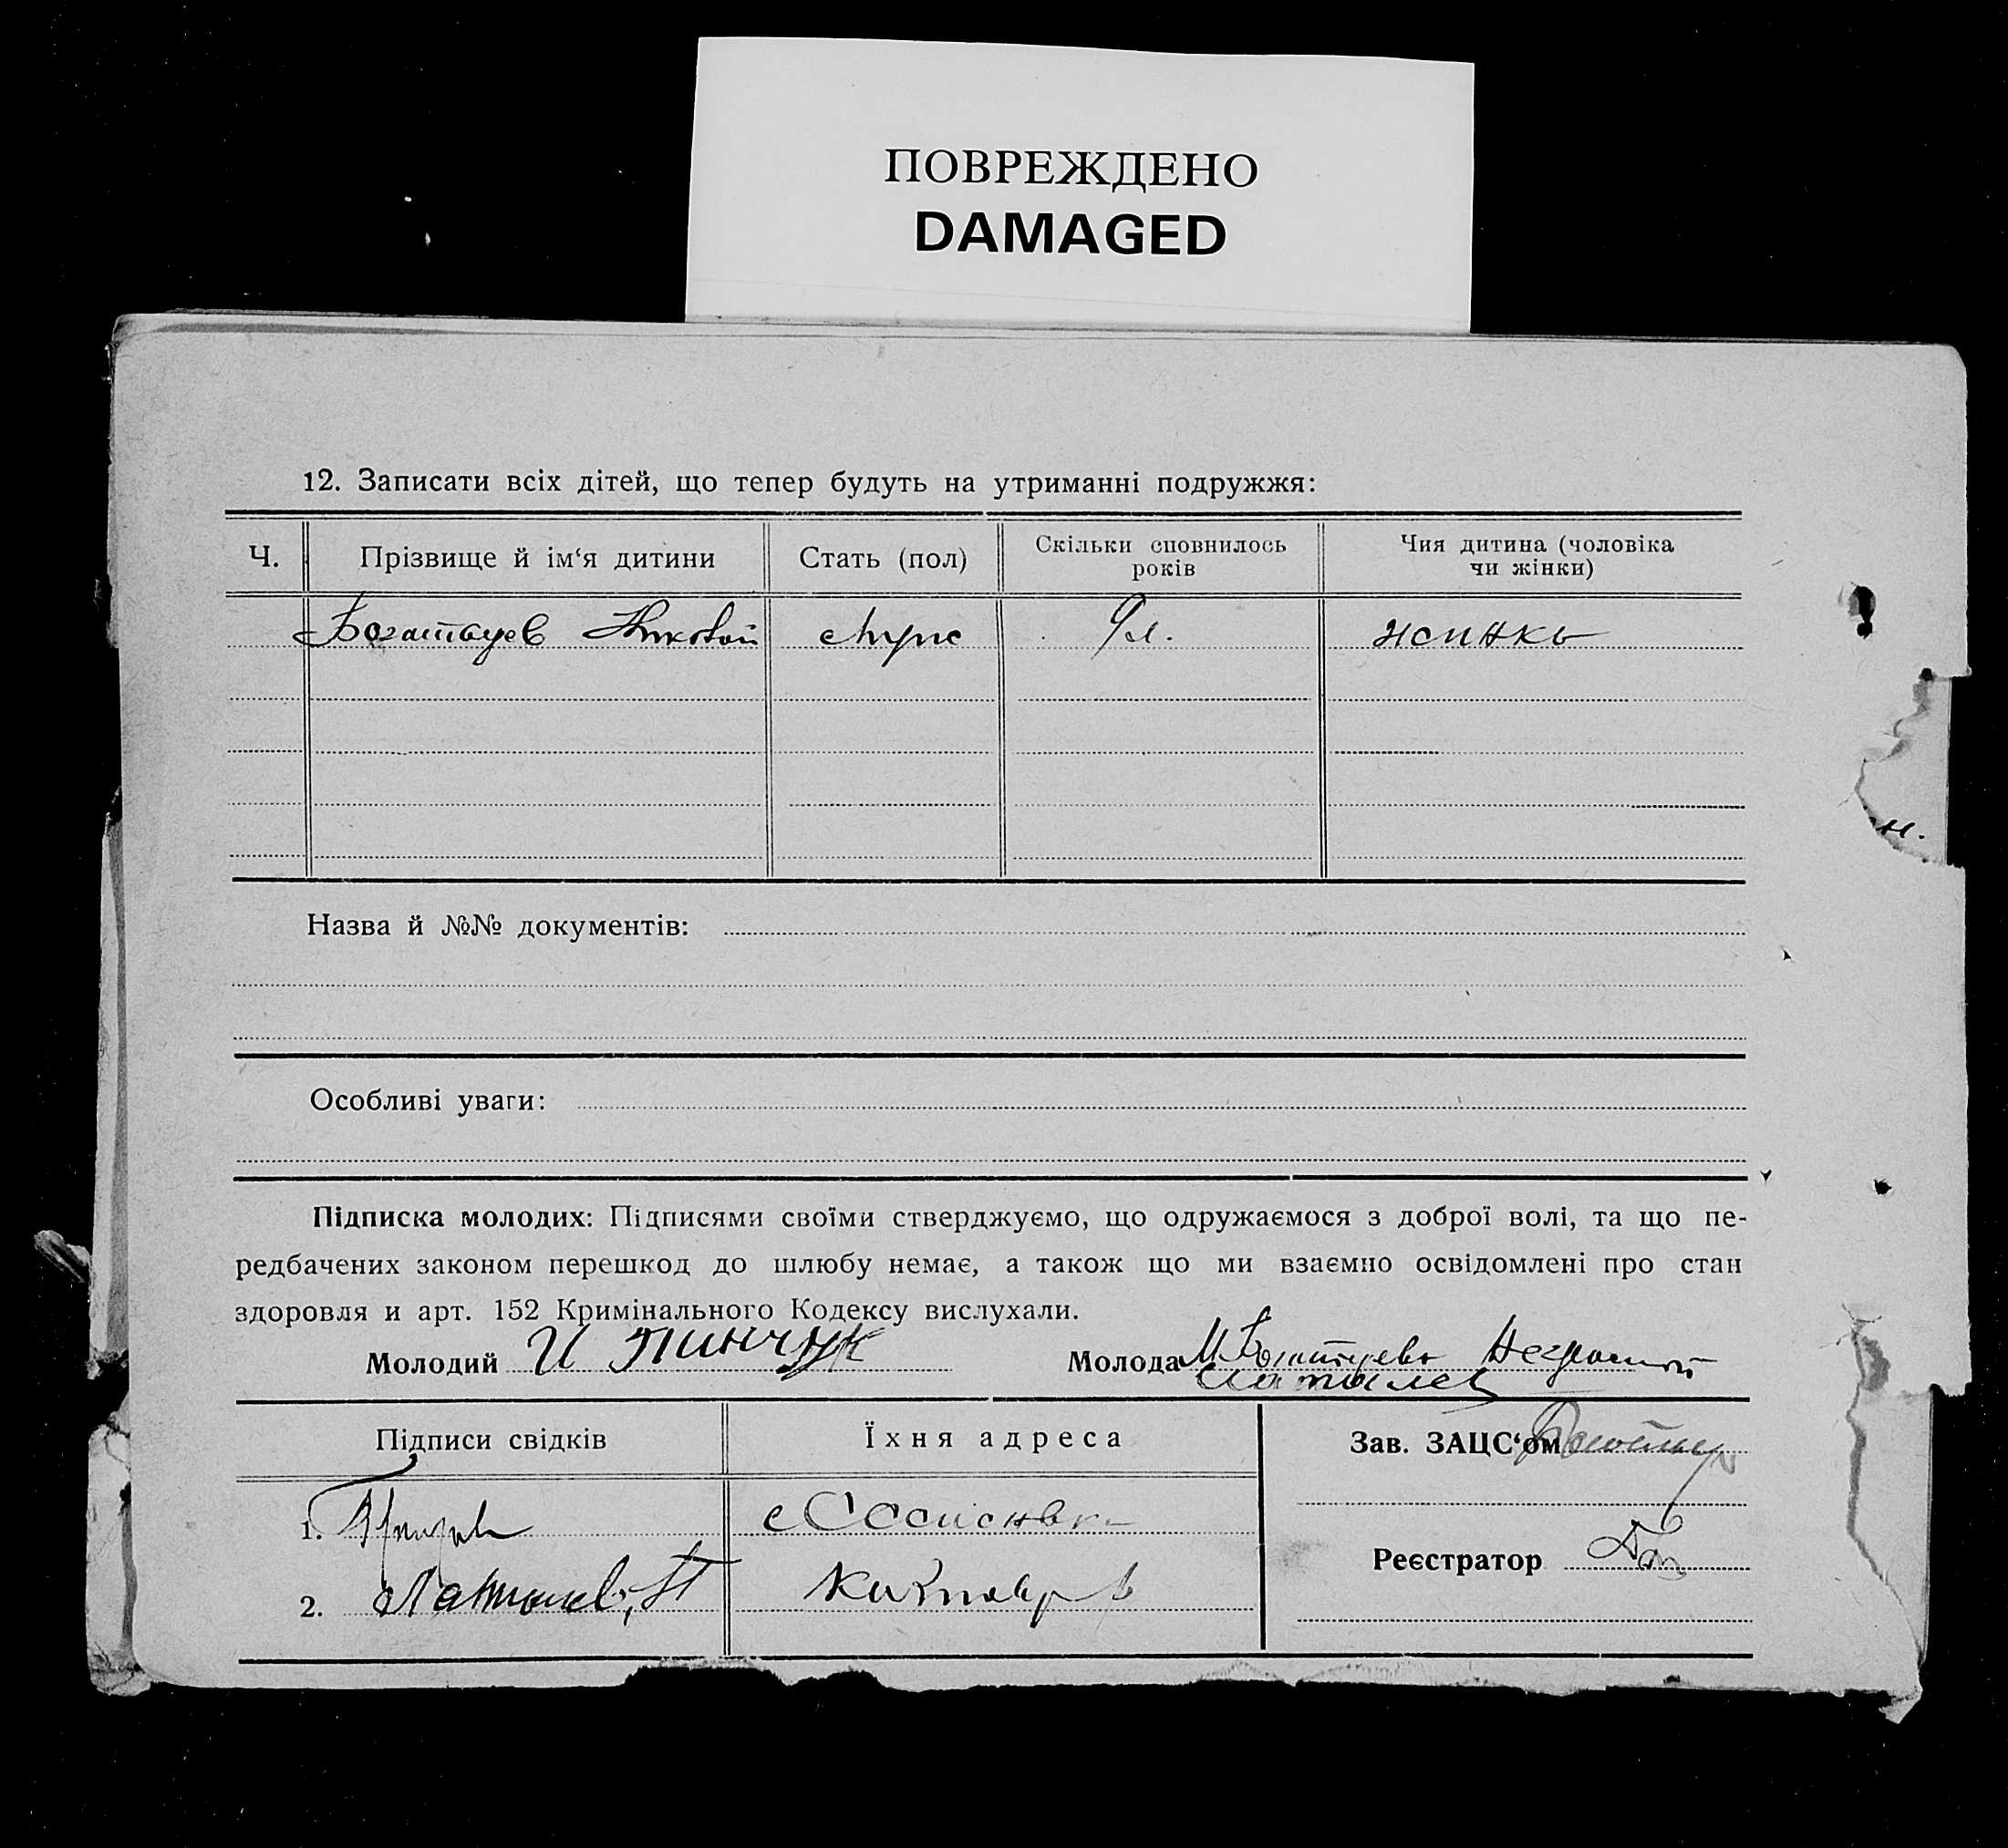 ПОВРЕЖДЕНО
DAMAGED
12. Записати всіх дітей, що тепер будуть на утриманні подружжя:
Ч. Прізвище й ім‘я дитини Стать (пол) Скільки сповнилось років Чия дитина (чоловіка чи жінки)
Богатырев Николай муж 9 л. жинкы
Назва й №№ документів:
Особливі уваги:
Підписка молодих: Підписями своїми стверджуємо, що одружаємося з доброї волі, та що пе-
редбачених законом перешкод до шлюбу немає, а також що ми взаємно освідомлені про стан
здоровля и арт. 152 Кримінального Кодексу вислухали.
Молодий И Пинчук Молода
Підписи свідків Їхня адреса Зав. ЗАЦС‘ом
1.
Реєстратор
2.